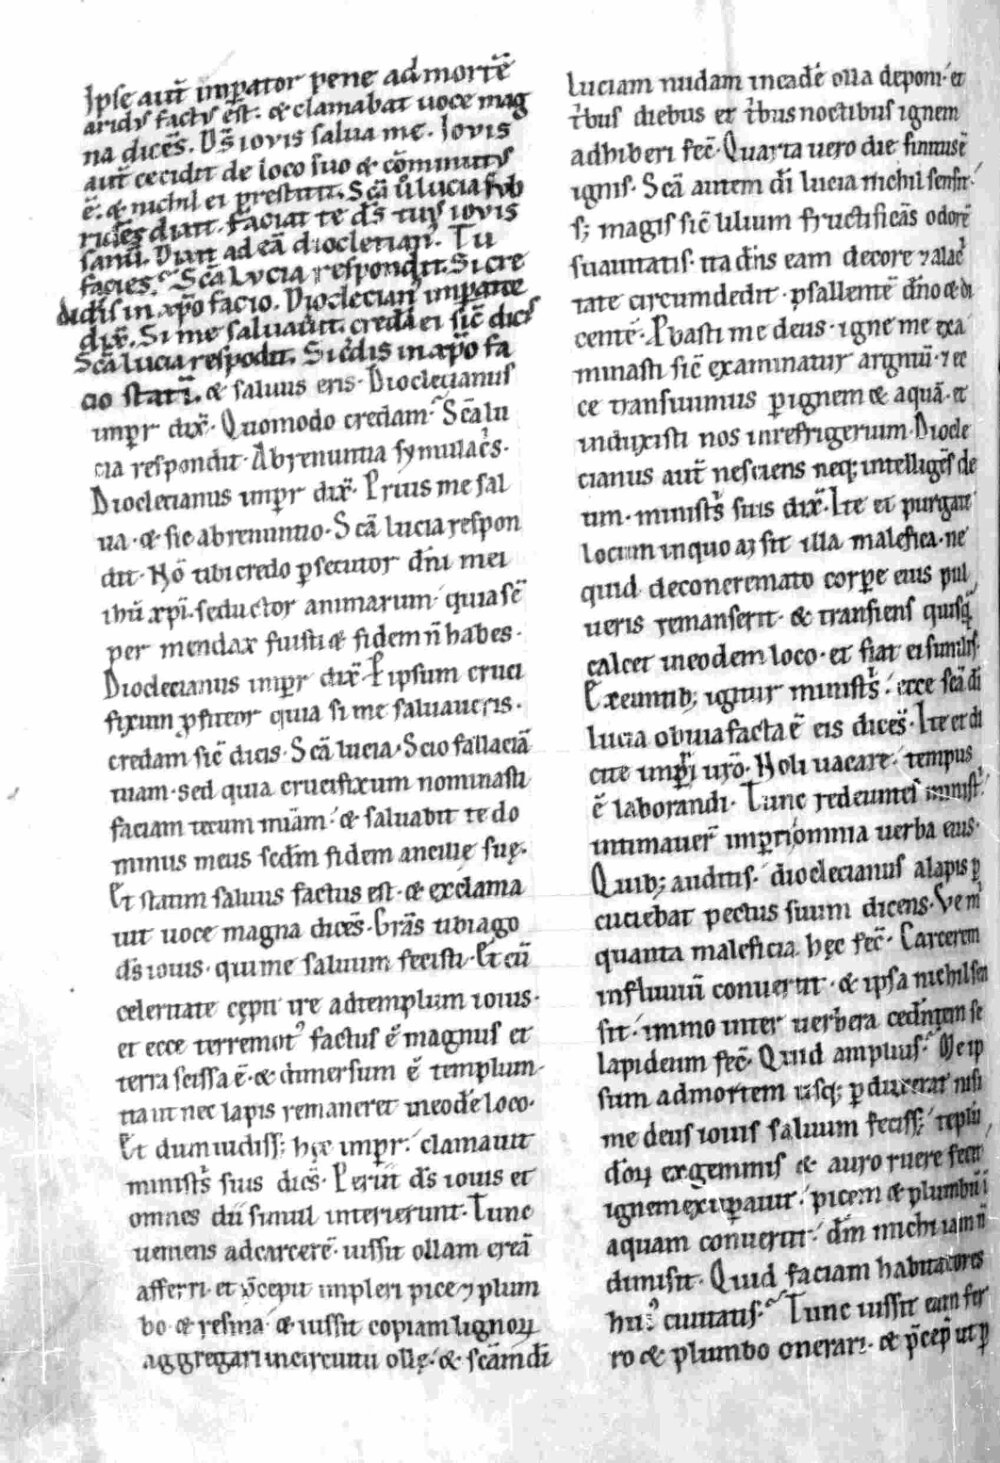 Ipse aut̄ imꝑator pene ad mortē
aridus factus est. & clamabat uoce mag
na dicēs. Ds̄ iouis salua me. Iouis
aut̄ cecidit de loco suo & cōminutus
ē. & nichil ei prestitit. Scā ū lucia sub
ridēs dixit. Faciat te ds̄ tuus iouis
sanū. Dixit ad eā dioclecian᾿. Tu
facies. Scā Lucia respondit. Si cre
didis in xp̄o facio. Dioclecian᾿ imperatore
dix̄. Si me saluauit. credā ei sic̄ dicis
Scā lucia respōdit. Si cr̄dis in xp̄o fa
cio statī. & saluus eris. Dioclecianus
imꝑr dix̄. Quomodo credam. Scā lu
cia respondit. Abrenuntia symulacr̄s.
Dioclecianus imꝑr dix̄. Prius me sal
ua. & sic abrenuntio. Scā lucia respon
dit. Nō tibi credo ꝑsecutor dn̄i mei
ihū xp̄i. seductor animarum quia sē
per mendax fuisti & fidem n̄ habes.
Dioclecianus imꝑr dix̄. P ipsum cruci
fixum ꝓfiteor quia si me saluaueris.
credam sic̄ dicis. Scā lucia. Scio fallaciā
tuam. sed quia crucifixum nominasti
faciam tecum miām. & saluabit te do
minus meus secdm̄ fidem ancille suę.
Et statim saluus factus est. & exclama
uit uoce magna dicēs. Grās tibi ago
ds̄ iouis. qui me saluum fecisti. Et cū
celeritate cępit ire ad templum iouis.
et ecce terremot᾿ factus ē magnus et
terra scissa ē. & dimersum ē templum
ita ut nec lapis remaneret in eodē loco.
Et dum uidiss; hęc imꝑr. clamauit
ministr̄s suis dicēs. Periit ds̄ iouis et
omnes dii simul interierunt. Tunc
uemens ad carcerē. iussit ollam ereā
afferri. et p̄cepit impleri pice ⁊ plum
bo & resina & iussit copiam lignoꝝ
aggregari in circuitu ollę. & scām di
luciam nudam in eadē olla deponi. et
tr̄bus diebus et tr̄bus noctibus ignem
adhiberi fec̄. Quarta uero die finitus ē
ignis. Scā autem di lucia nichil sensit.
s; magis sic̄ lilium fructificās odorē
suauitatis. ita dn̄s eam decore ⁊ alac
tate circumdedit. psallentē dn̄o & di
centē. Pbasti me deus. igne me exa
minasti sic̄ examinatur argntū. ⁊ ec
ce transiuimus ꝑ ignem & aquā. et
induxisti nos in refrigerium. Diocle
cianus aut̄ nesciens neq; intelligēs de
um. ministr̄s suis dix̄. Ite et purgate
locum in quo aꝫ sit illa malefica. ne
quid de concremato corꝑe eius pul
ueris remanserit. & transiens quisq̄
calcet in eodem loco. et fiat ei similis.
Exeuntib; igitur ministr̄s. ecce scā di
lucia obuia facta ē eis dicēs. Ite et di
cite imꝑri uro᷑. Noli uacare. tempus
ē laborandi. Tunc redeuntes ministr̄
intimauer̄ imꝑri omnia uerba eius.
Quib; auditis. dioclecianus alapis ꝑ
cutiebat pectus suum dicens. Ve m
quanta maleficia hęc fec̄. Carcerem
in fluuiū conuertit. & ipsa nichil sen
sit. immo inter uerbera cedn̄tem se
lapideum fec̄. Quid amplius. Me ip
sum ad mortem usq; ꝑduxerat nisi
me deus iouis saluum feciss; teplū
dōꝝ ex gemmis & auro ruere fecit
ignem exsuꝑauit. picem & plumbū ī
aquam conuertit. dm̄ michi iam n̄
dimisit. Quid faciam habitatores
hui᾿ ciuitatis. Tunc iussit eam fer
ro & plumbo onerari. & p̄cep̄ ut ꝑ